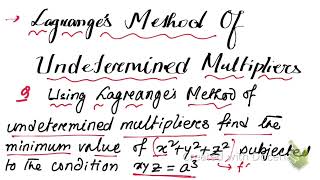 → Lagrange's Method Of
Undetermined Multipliers
Q Using Lagrange's Method of
undetermined multipliers find the
minimum value of (x²+y²+z²) subjected
to the condition xyz = a³ → f